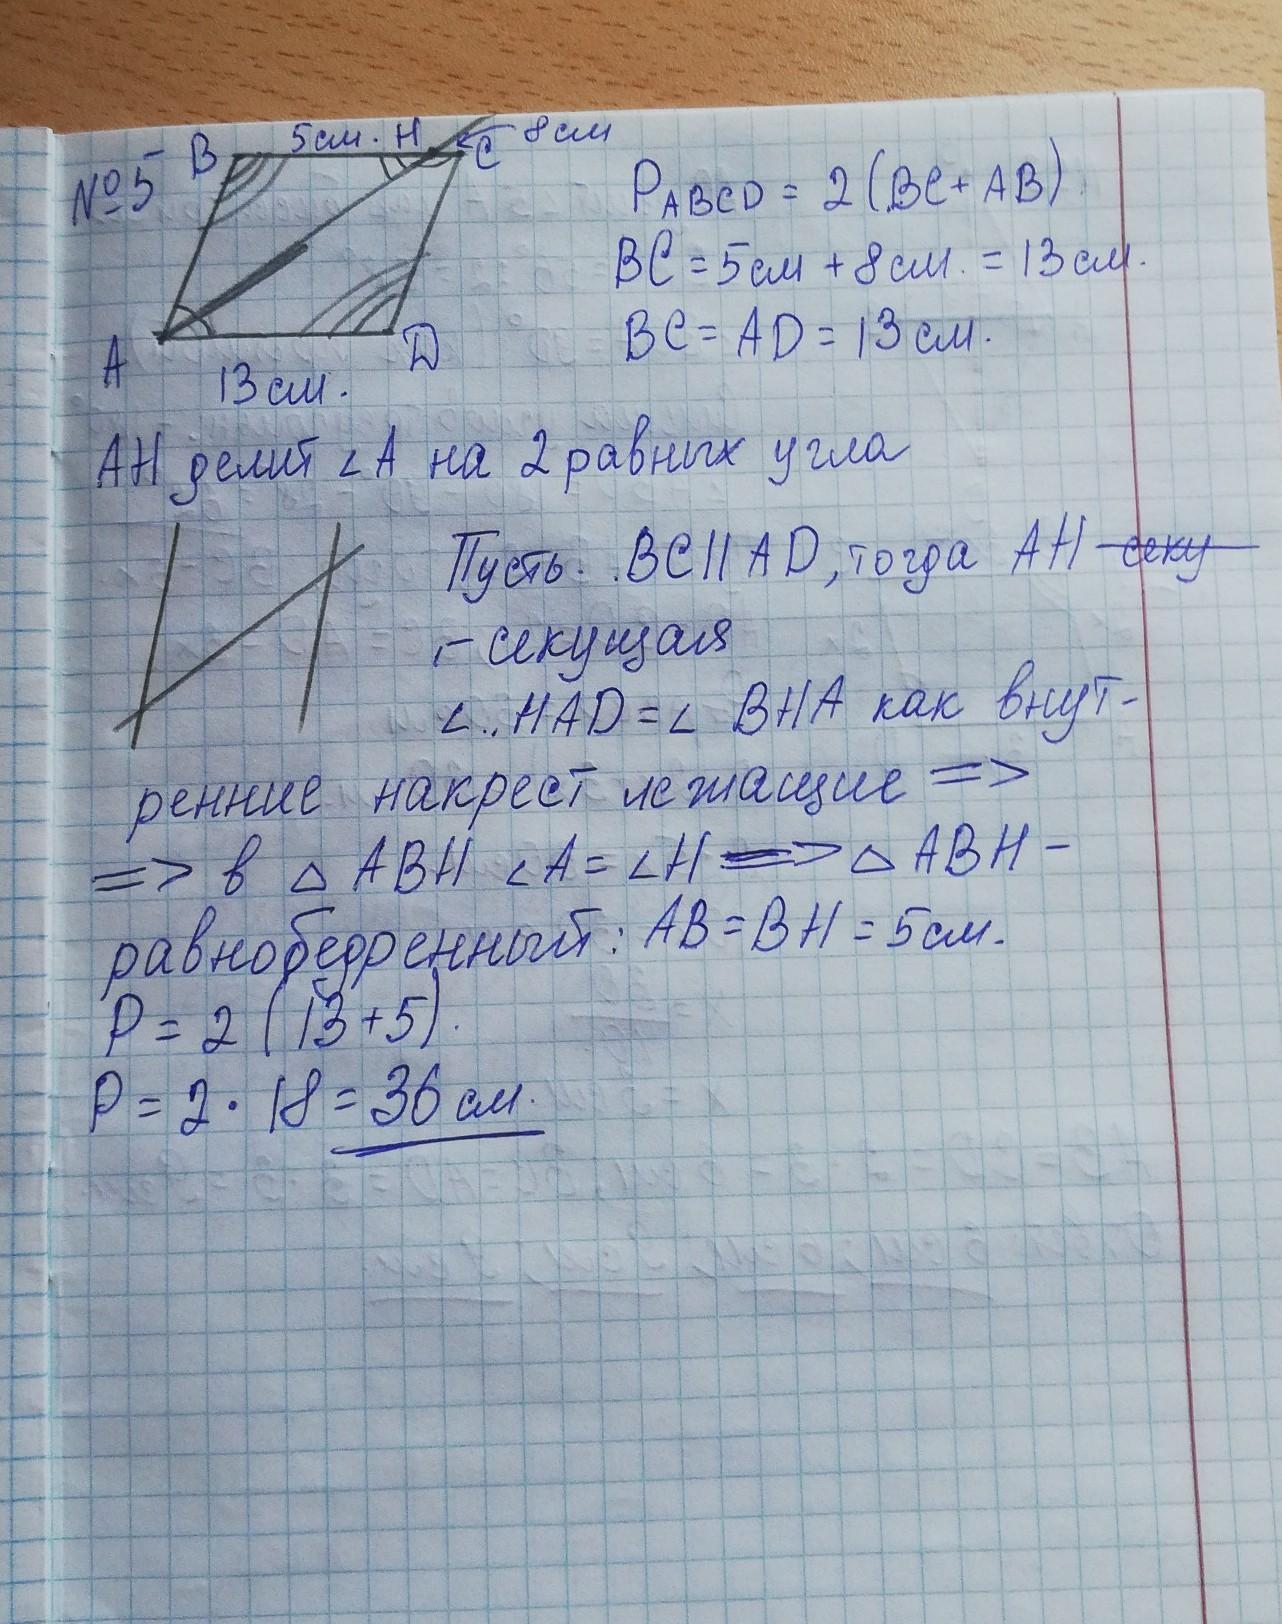 №5 B 5см. H C 8см
P ABCD = 2(BC+AB)
BC = 5см + 8см. = 13см.
BC = AD = 13см.
A 13см. D
AH делит ∠A на 2 равных угла
Пусть BC || AD, тогда AH секу
- секущая
∠ HAD = ∠ BHA как внут-
ренние накрест лежащие =>
=> в △ ABH ∠A = ∠H => △ ABH -
равнобедренный: AB = BH = 5см.
P = 2 (13+5).
P = 2 · 18 = 36 см.